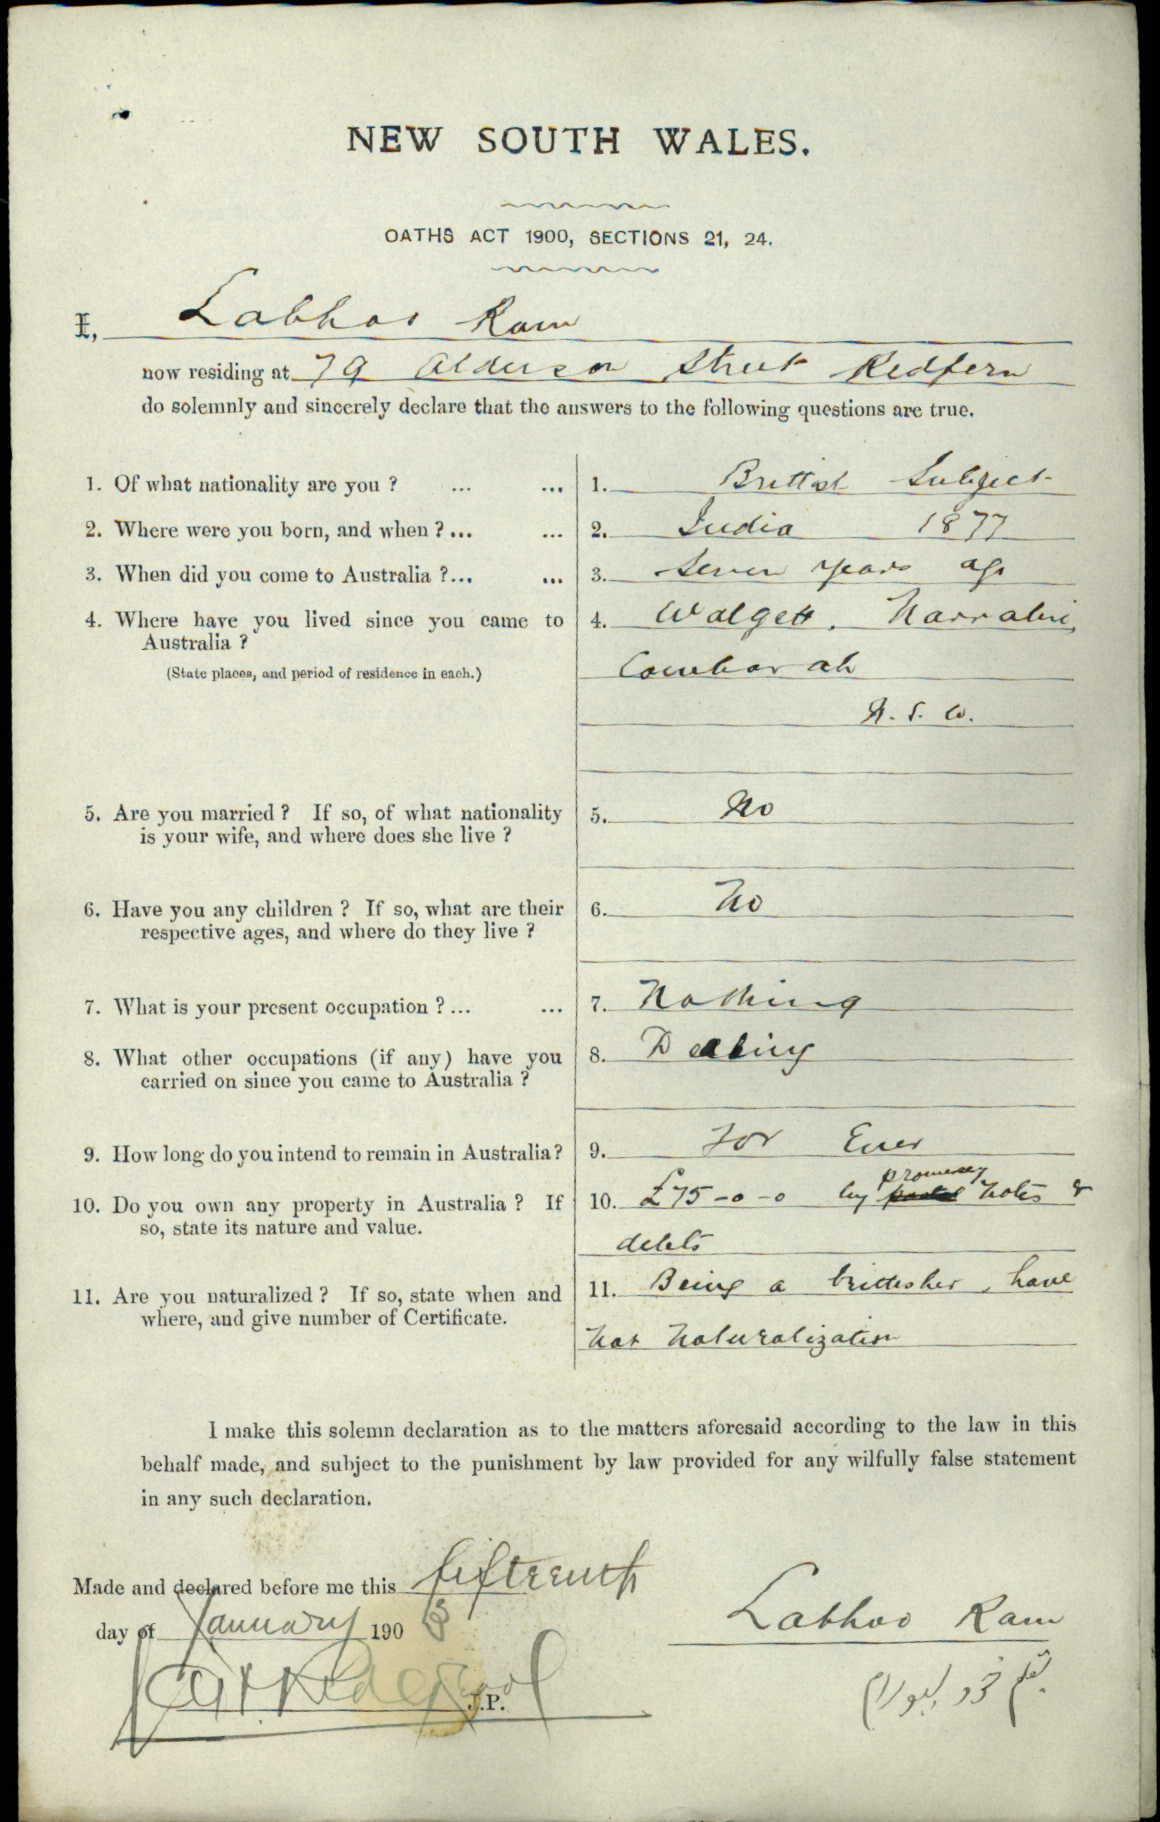 NEW SOUTH WALES.
OATHS ACT 1900, SECTIONS 21, 24.
I, Labhoo Ram
now residing at 79 Alderson Street Redfern
do solemnly and sincerely declare that the answers to the following questions are true.
1. Of what nationality are you ? ... ... 1. Brittish Subject
2. Where were you born, and when ? ... ... 2. India 1877
3. When did you come to Australia ? ... ... 3. Seven years ago
4. Where have you lived since you came to 4. Walgett, Narrabri,
Australia ?
(State places, and period of residence in each.) Cumborah
N. S. W.
5. Are you married ? If so, of what nationality 5. No
is your wife, and where does she live ?
6. Have you any children ? If so, what are their 6. No
respective ages, and where do they live ?
7. What is your present occupation ? ... ... 7. Nothing
8. What other occupations (if any) have you 8. Dealing
carried on since you came to Australia ?
9. How long do you intend to remain in Australia ? 9. For Ever
10. Do you own any property in Australia ? If 10. £75-0-0 by promissy notes &
so, state its nature and value. debts
11. Are you naturalized ? If so, state when and 11. Being a brittisher, have
where, and give number of Certificate. not Naturalization
I make this solemn declaration as to the matters aforesaid according to the law in this
behalf made, and subject to the punishment by law provided for any wilfully false statement
in any such declaration.
Made and declared before me this fifteenth
day of January 190
Labhoo Ram
J.P.